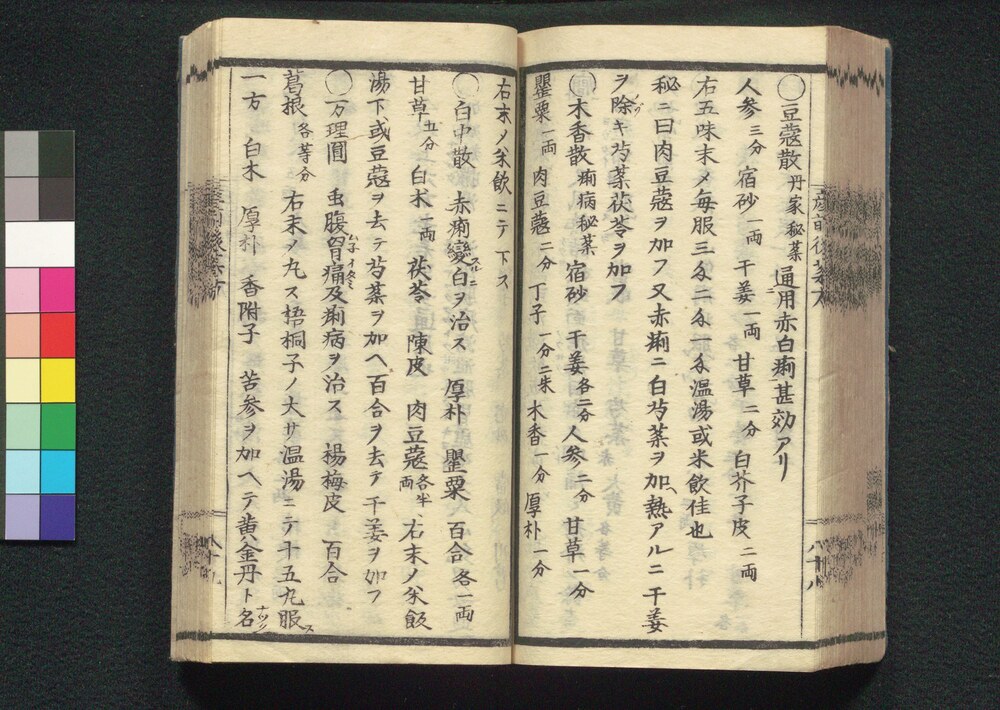 ○豆蔲散 丹家秘薬 通用赤白痢甚効アリ
人参 三分 宿砂 一両 干姜 一両 甘草 二分 白芥子皮 二両
右五味末〆毎服三匁二匁一匁温湯或米飲佳也
秘ニ曰肉豆蔲ヲ加フ又赤痢ニ白芍薬ヲ加、熱アルニ干姜
ヲ除キ芍薬茯苓ヲ加フ
○木香散 痢病秘薬 宿砂 干姜 各二分 人参 二分 甘草 一分
罌粟 一両 肉豆蔲 二分 丁子 一分二朱 木香 一分 厚朴 一分
右末〆米飲ニテ下ス
○白中散 赤痢變スルニ白ヲ治ス 厚朴 罌粟 百合 各一両
甘草 五分 白朮 一両 茯苓 陳皮 肉豆蔲 各半両 右末〆米飯
湯下或豆蔲ヲ去テ芍薬ヲ加ヘ百合ヲ去テ干姜ヲ加フ
○万理圓 虫腹胃痛及痢病ヲ治ス 楊梅皮 百合
葛根 各等分 右末〆丸ス梧桐子ノ大サ温湯ニテ十五丸服ス
一方 白朮 厚朴 香附子 苦参ヲ加ヘテ黄金丹ト名ナツク
産前後薬方
八十八
八十九